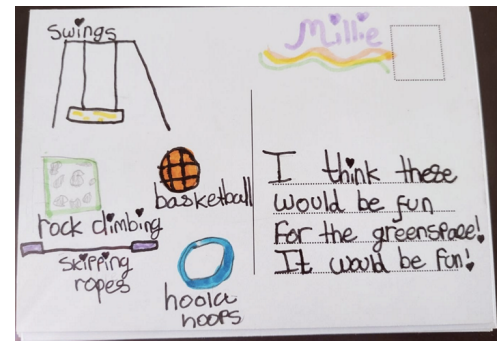 Swings
Millie
basketball
rock climbing
skipping
ropes
hoola
hoops
I think these
would be fun
For the greenspace!
It would be fun!